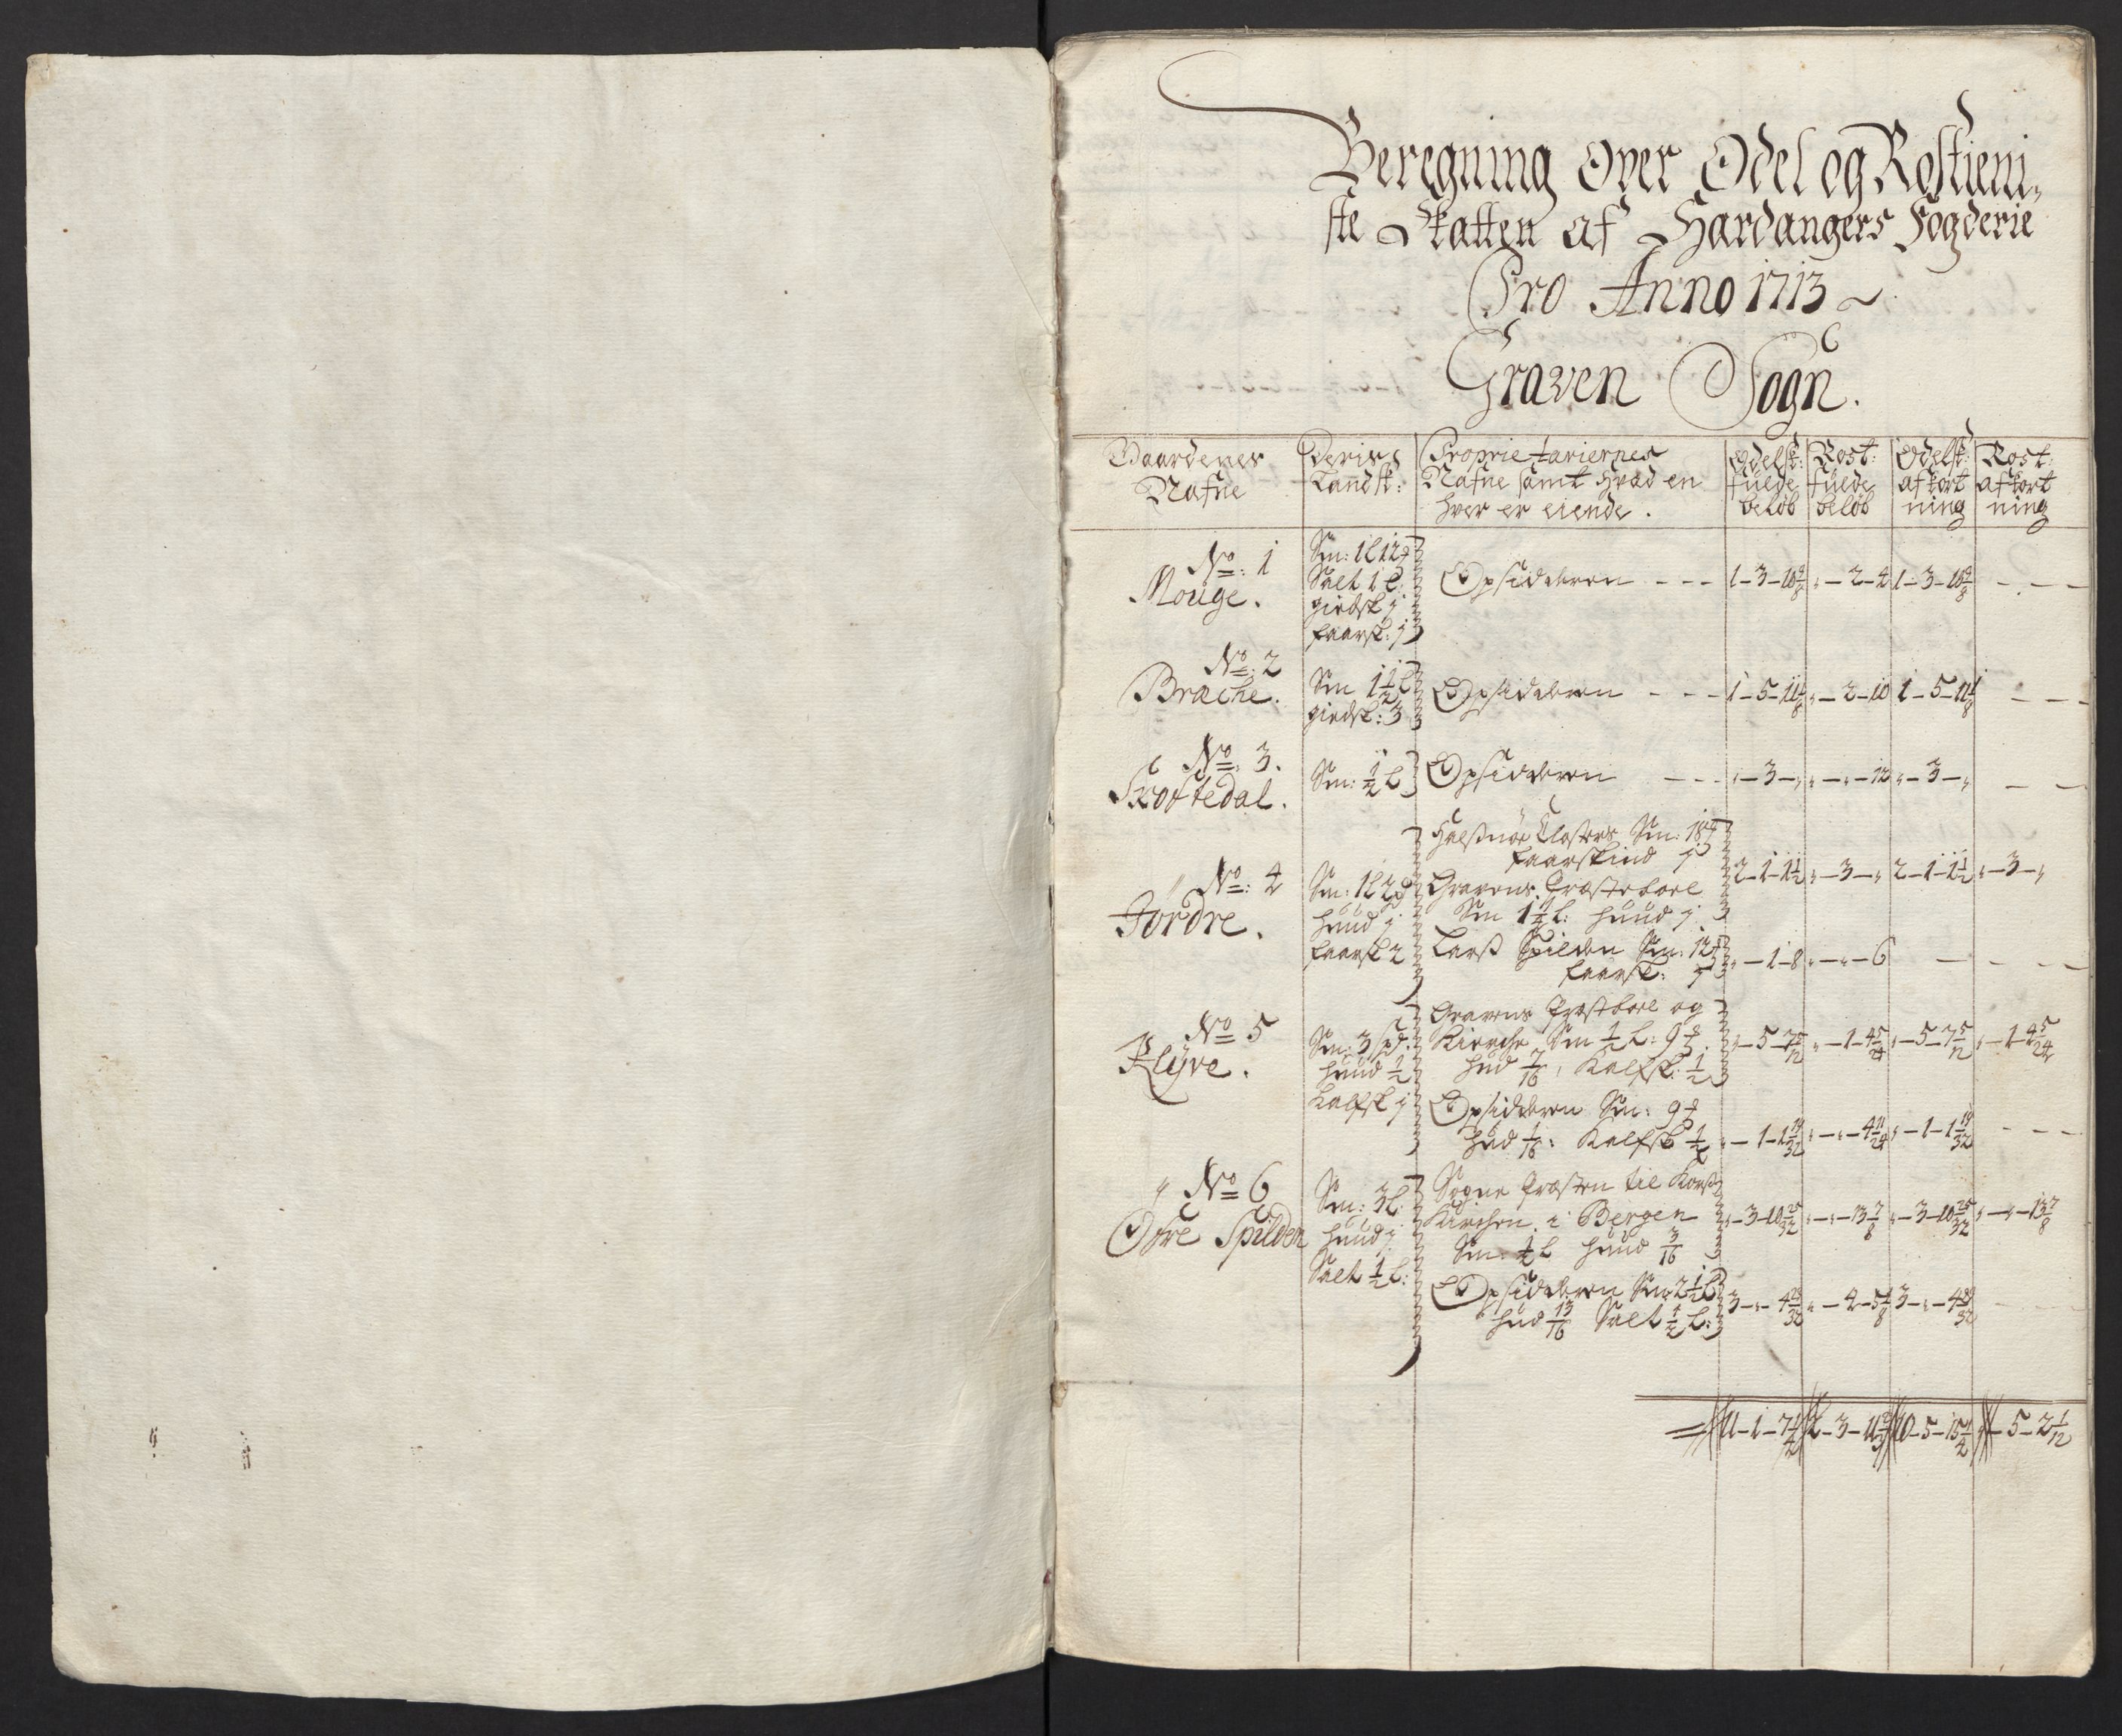 Beregning Over Odel og Rostieni,
ste Skatten af Hardangers Fogderie
Pro Anno 1713
Graven Sogn.
Gaardenes Nafne
Deris Landsk:
Proprietariernes
Nafne samt hvad en
hver er eiende.
Odelsk: fulde beløb
Rost: fulde beløb
Odelsk: afkort ning
Rost: afkort ning
No: 1
Mouge.
Sm: 1 L 12
Salt 1 L
giedsk j
faarsk: j
Opsidderen - - - 1-3-10 „-2-4 1-3-10 - - -
No: 2
Bræche.
Sm 1 1/2 L
giedsk: 3
Opsidderen - - - 1-5-11 1/8 „-2-10 1-5-11 1/8 - - -
No: 3.
Skoftedal.
Sm: 1/2 L
Opsidderen - - - „-3-„ „-„-12 „-3-„ - -
No: 4
Jørdre.
Sm: 1 L
huud j
faarsk 2
Halsnøe Closter Sm: 18
faarskind j
2-1-1 1/2 „-3-„ 2-1-1 1/2 „-3-„
Gravens Præsteboel
Sm 1 1/4 L: huud j
Larss Spilden Sm: 12
faarsk: j
„-1-8 „-„-6 - - - -
No 5
Klyve.
Sm: 3 spd:
huud 1/2
Kalfsk j
Gravens Præstboel og
Kirche Sm 1/2 L: 9
hud 7/16, Kalfsk: 1/2
„-5-7 5/12 „-1-4 5/24 „-5-7 5/12 „-1-4 5/24
Opsidderen Sm: 9
hud 1/16: Kalfsk 1/2
„-1-1 19/32 „-„-4 11/24 „-1-1 19/32 - - -
No 6
Øfre Spilden
Sm: 3 L:
huud j
Salt 1/2 L:
Sogne Præsten til Korss
Kirchen i Bergen
Sm: 1/2 L huud 3/16
„-3-10 25/32 „-„-13 7/8 „-3-10 25/32 „-„-13 7/8
Opsidderen Sm 2 1/2 L
hud 13/16 Salt 1/2 L:
3-„-4 „-4-5 1/8 3-„-4
11-1-7 1/4 2-3-11 10-5-15 1/4 „-5-2 1/12